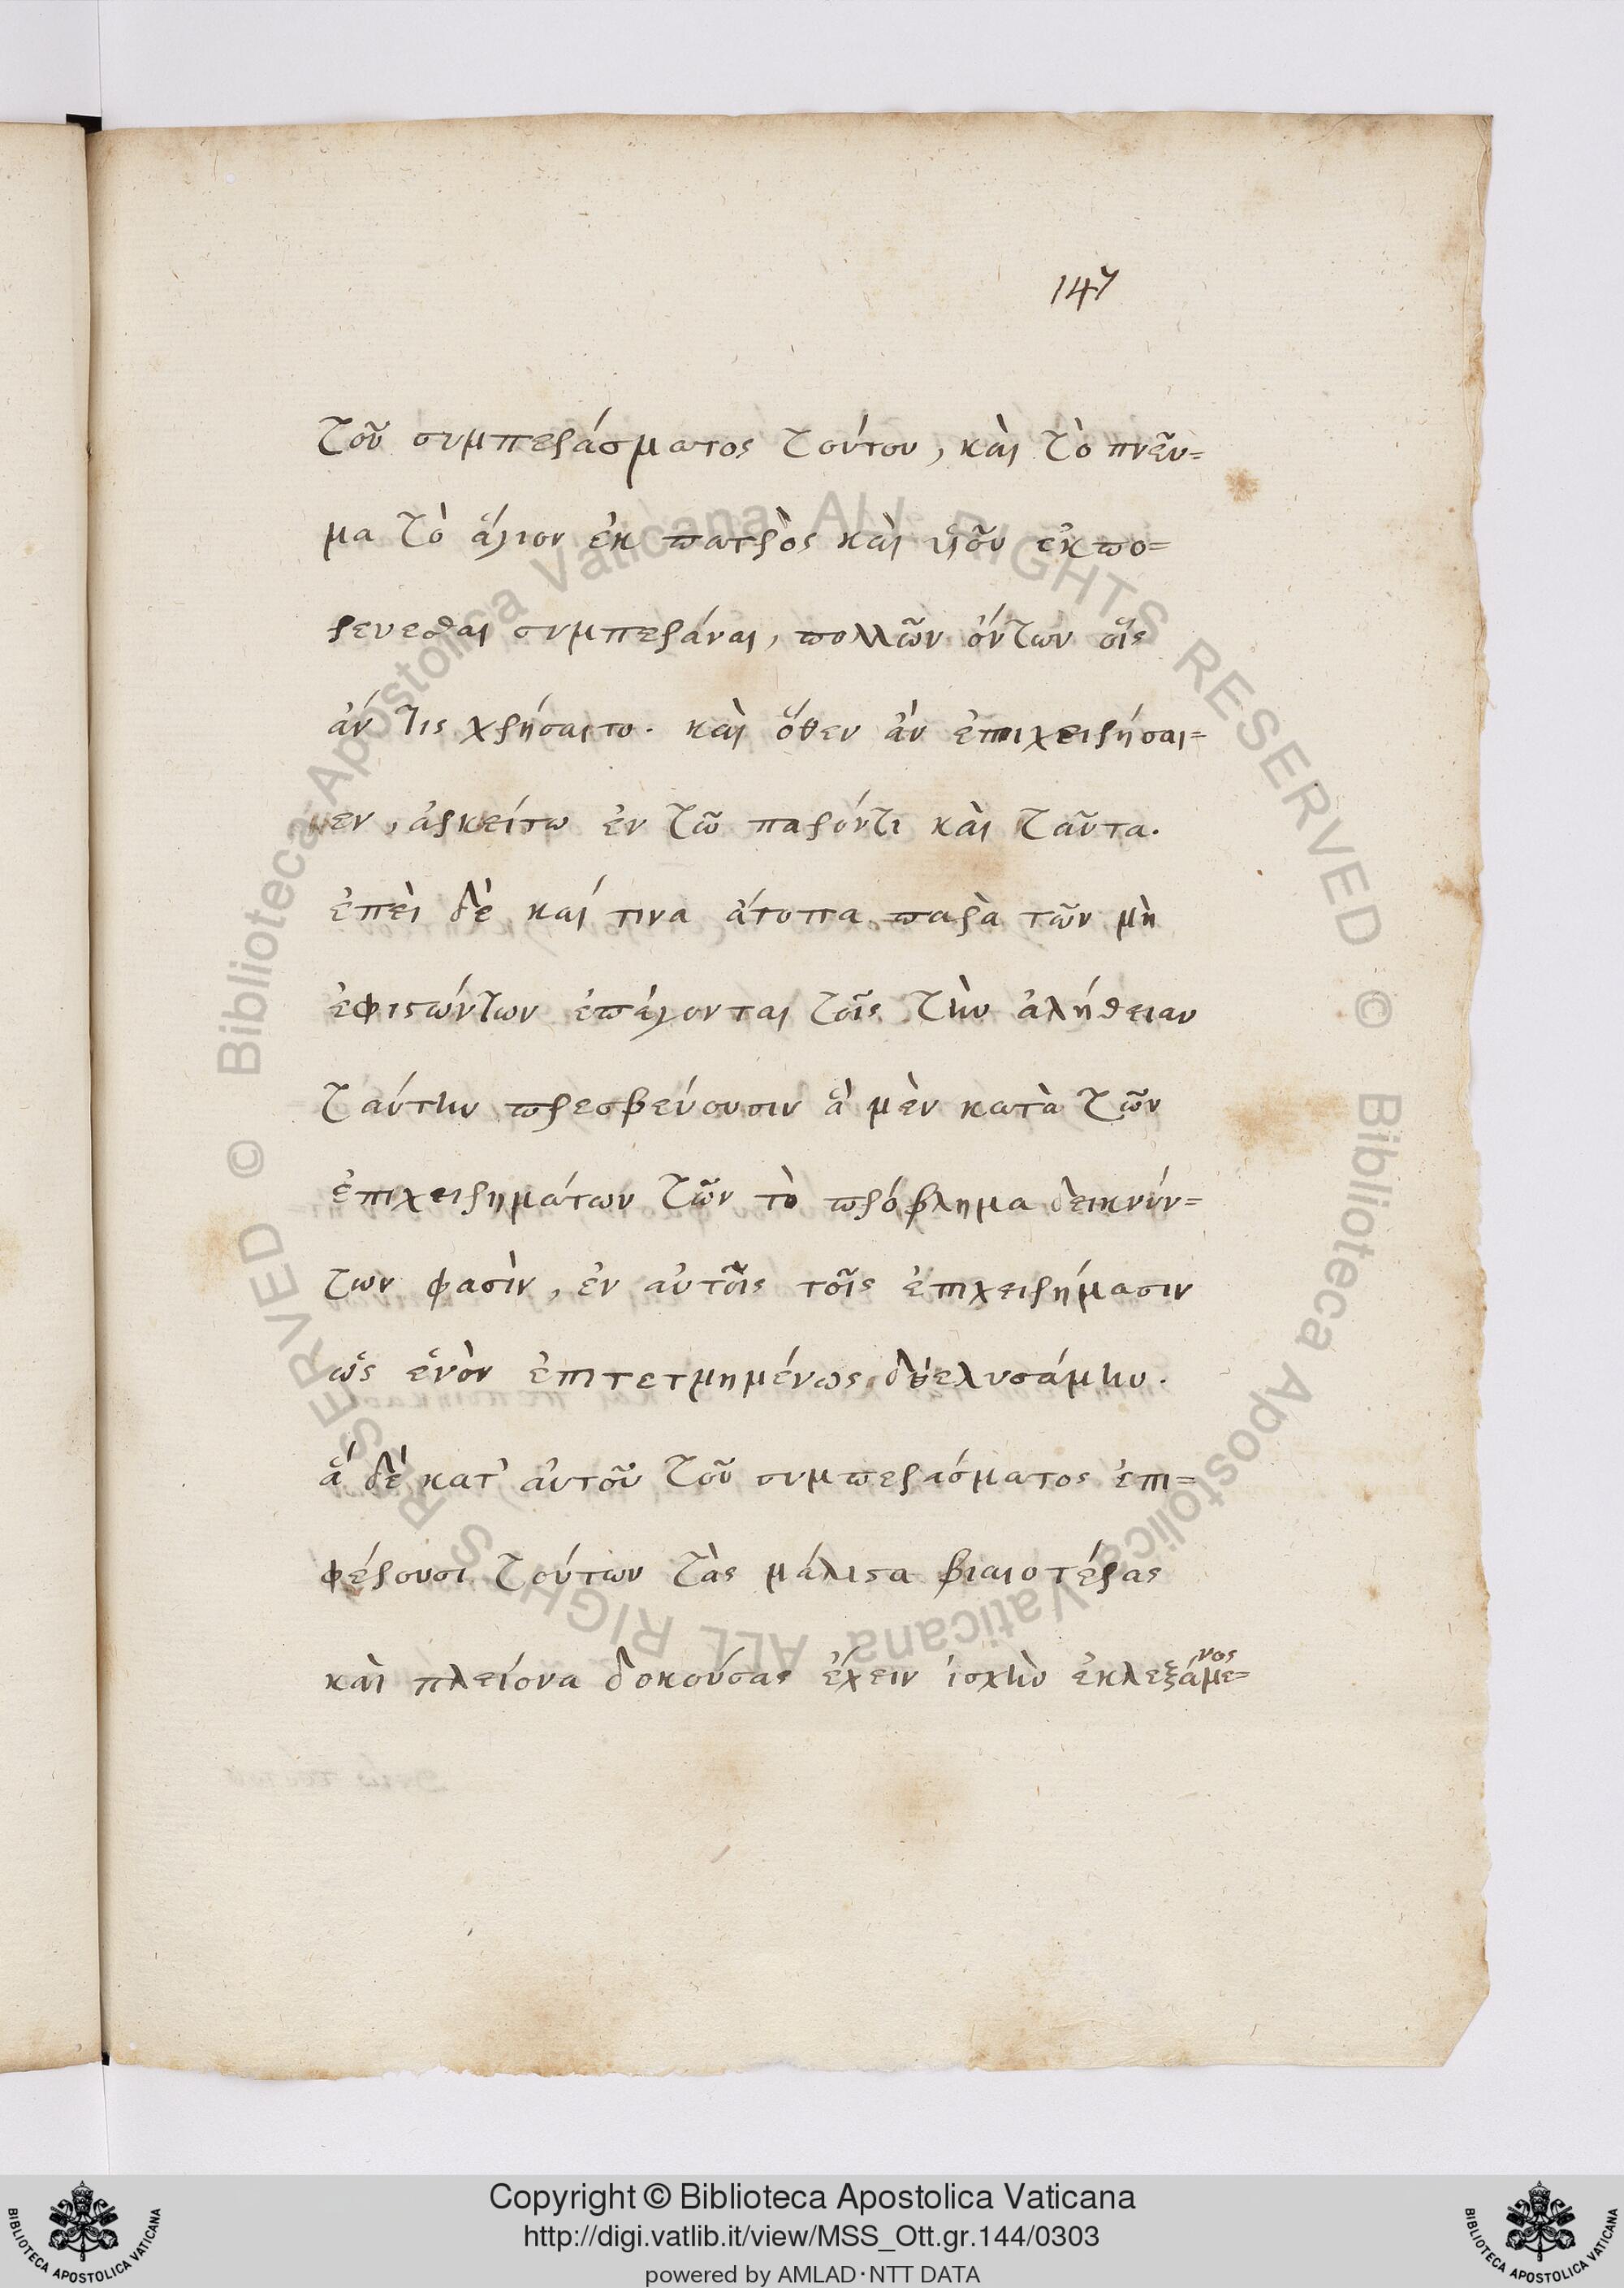 147
τοῦ συμπεράσματος τούτου, καὶ τὸ πνεῦ=
μα τὸ ἅγιον ἐκ πατρὸς καὶ υἱοῦ ἐκπο=
ρευεσθαι συμπεράναι, πολλῶν ὄντων οἷς
ἄν τις χρήσαιτο. καὶ ὅθεν ἂν ἐπιχειρήσαι=
μεν, ἀρκείτω ἐν τῶ παρόντι καὶ ταῦτα.
ἐπεὶ δὲ καί τινα ἄτοπα παρὰ τῶν μὴ
ἐφιστώντων ἐπάγονται τοῖς τὴν ἀλήθειαν
ταύτην πρεσβεύουσιν ἃ μὲν κατὰ τῶν
ἐπιχειρημάτων τῶν τὸ πρόβλημα δεικνύν=
των φασὶν, ἐν αὐτοῖς τοῖς ἐπιχειρήμασιν
ὡς ἐνὸν ἐπιτετμημένως διελυσάμην.
ἃ δὲ κατ' αὐτοῦ τοῦ συμπεράσματος ἐπι=
φέρουσι τούτων τὰς μάλιστα βιαιοτέρας
καὶ πλείονα δοκούσας ἔχειν ἰσχὺν ἐκλεξάμε=
νος
Copyright © Biblioteca Apostolica Vaticana
http://digi.vatlib.it/view/MSS_Ott.gr.144/0303
powered by AMLAD·NTT DATA
BIBLIOTECA APOSTOLICA VATICANA
BIBLIOTECA APOSTOLICA VATICANA
Biblioteca Apostolica Vaticana ALL RIGHTS RESERVED ©
Biblioteca Apostolica Vaticana ALL RIGHTS RESERVED ©